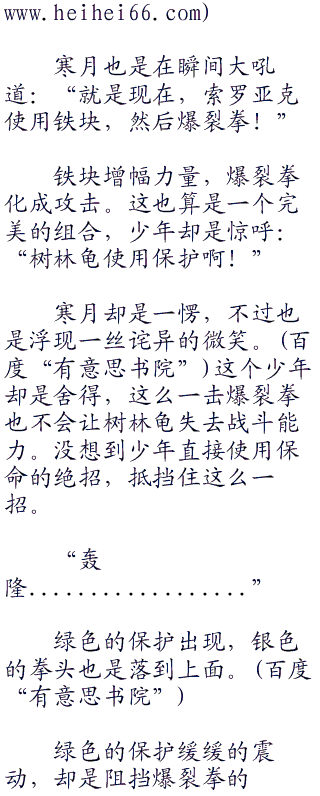 www.heihei66.com)
寒月也是在瞬间大吼
道：“就是现在，索罗亚克
使用铁块，然后爆裂拳！”
铁块增幅力量，爆裂拳
化成攻击。这也算是一个完
美的组合，少年却是惊呼：
“树林龟使用保护啊！”
寒月却是一愣，不过也
是浮现一丝诧异的微笑。(百
度“有意思书院”)这个少年
却是舍得，这么一击爆裂拳
也不会让树林龟失去战斗能
力。没想到少年直接使用保
命的绝招，抵挡住这么一
招。
“轰
隆..................”
绿色的保护出现，银色
的拳头也是落到上面。(百度
“有意思书院”)
绿色的保护缓缓的震
动，却是阻挡爆裂拳的